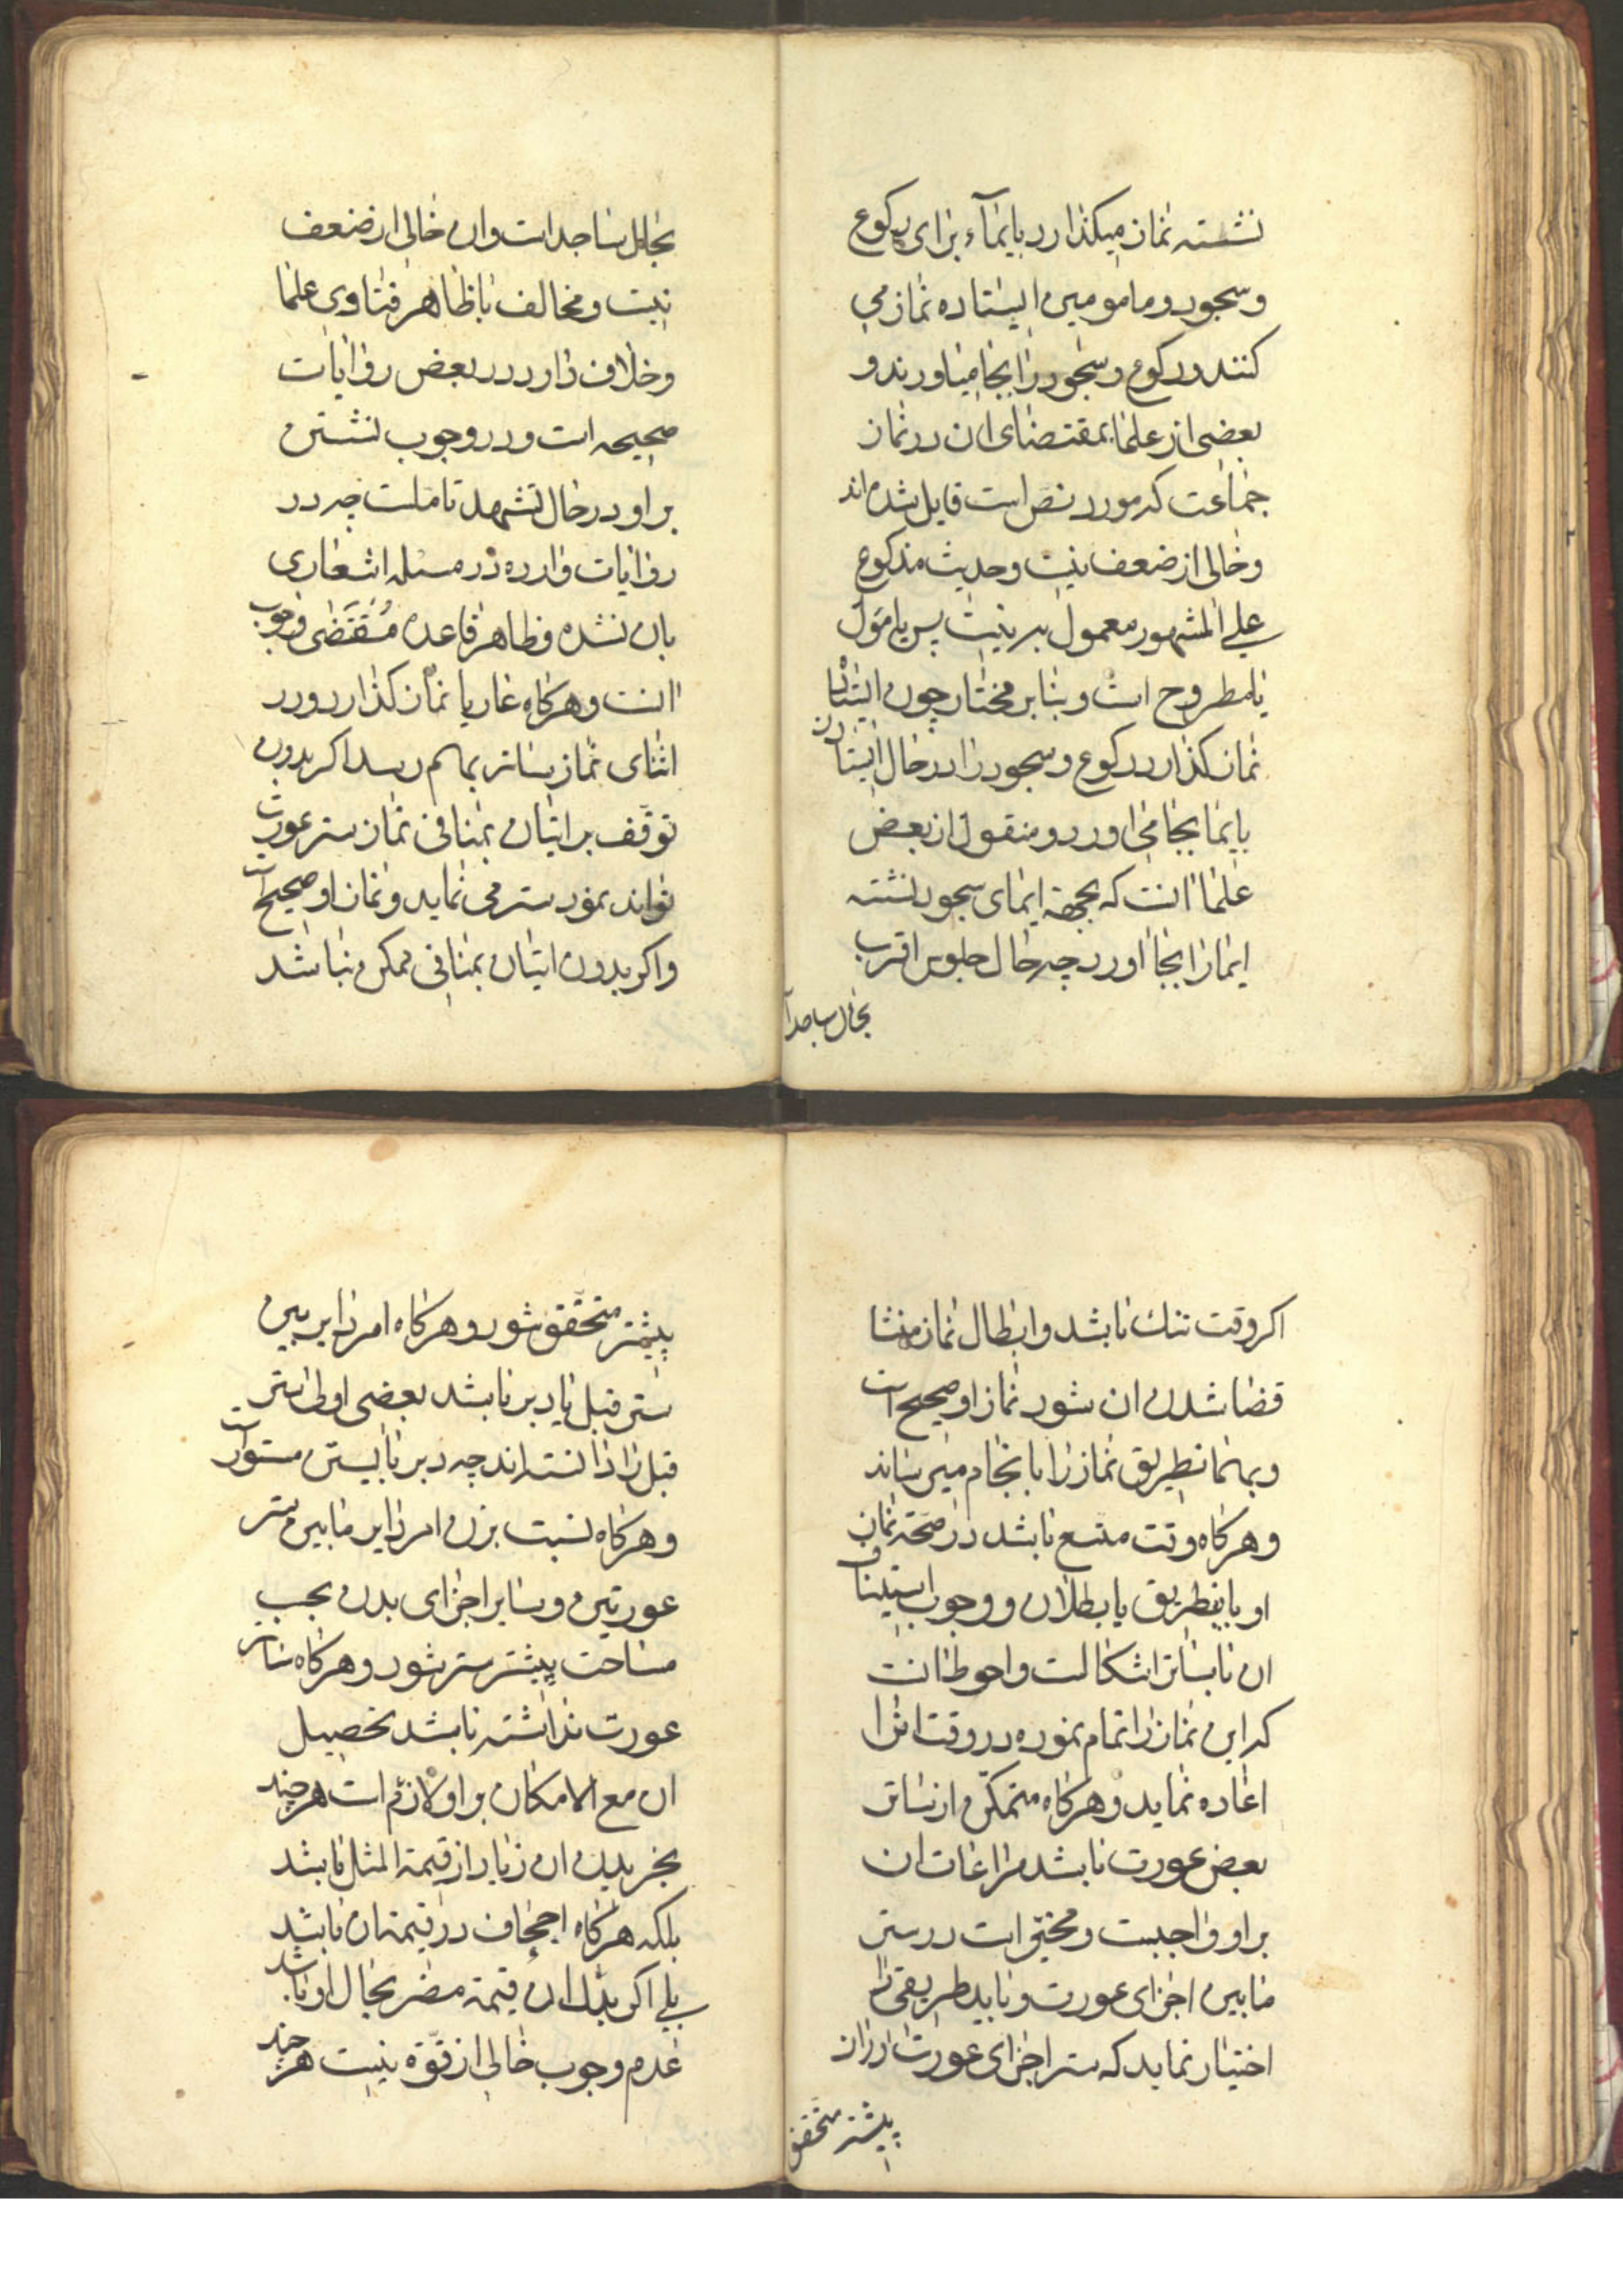 نشسته نماز میکذارد بایمآء برای رکوع
و سجود و مامومین ایستاده نماز می
کنند و رکوع و سجود را بجا میاورند و
بعضی از علما بمقتضای ان در نماز
جماعت که مورد نص است قایل شده اند
و خالی از ضعف نیست و حدیث مذکور
علی المشهور معمول به نیست پس یا مؤل
یا مطروح است و بنا بر مختار چون ایستاده
نماز کذارد رکوع و سجود را در حال ایستادن
بایما بجا می اورد و منقول از بعض
علما انست که بجهة ایمای سجود نشسته
ایما را بجا اورد چه حال جلوس اقرب
بحال ساجد است
بحال ساجد است و ان خالی از ضعف
نیست و مخالف با ظاهر فتاوی علما
و خلاف دارد در بعض روایات
صحیحه است و در وجوب نشستن
بر او در حال تشهد تاملست چه در
روایات وارده در مسئله اشعاری
بان نشده و ظاهر قاعده مقتضی وجوب
انست و هرکاه عاریا نماز کذارد و در
اثنای نماز بساتر بهم رسد اکر بدون
توقف بر اتیان بمنافی نماز ستر عورت
تواند نمود ستر می نماید و نماز او صحیح است
و اکر بدون اتیان بمنافی ممکن نباشد
اکر وقت تنك باشد و ابطال نماز منشا
قضا شدن ان شود نماز او صحیح است
و بهمانطریق نماز را باانجام میرساند
و هرکاه وقت متسع باشد در صحة نماز
او باینطریق یا بطلان و وجوب استیناف
ان با ساتر اشکالست و احوط انست
که این نماز را تمام نموده در وقت انرا
اعاده نماید و هرکاه متمکن از ساتر
بعض عورت باشد مراعات ان
بر او واجبست و مخیر است در ستر
مابین اجزای عورت و باید طریقی را
اختیار نماید که ستر اجزای عورت از ان
بیشتر متحقق
بیشتر متحقق شود و هرکاه امر دایر بین
ستر قبل یا دبر باشد بعضی اولی ستر
قبل را دانسته اند چه دبر باالیتین مستور است
و هرکاه نسبت بزن امر دایر مابین ستر
عورتین و سایر اجزای بدن بحسب
مساحت بیشتر ستر شود و هرکاه ساتر
عورت نداشته باشد تحصیل
ان مع الامکان بر او لازم است هرچند
بخریدن ان زیاد از قیمة المثل باشد
بلکه هرکاه اجحاف در قیمت ان باشد
بلی اکر بذل ان قیمة مضر بحال او باشد
عدم وجوب خالی از قوة نیست هرچند